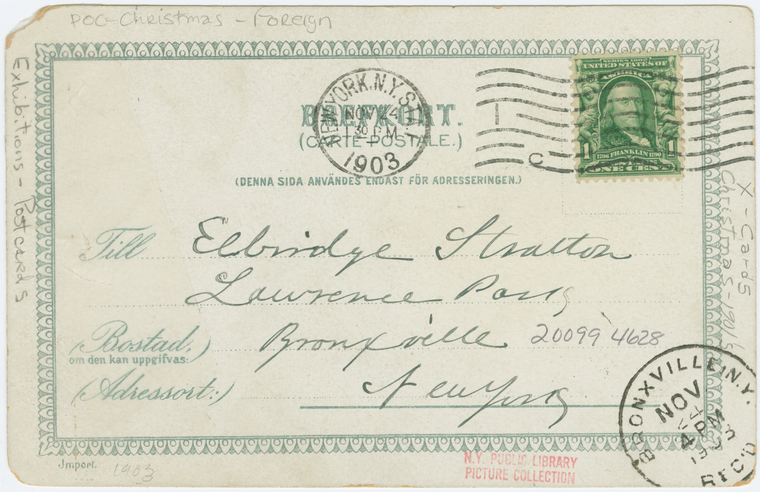 POC-Christmas - Foreign
Exhibitions - Postcards
X-Cards
Christmas-
NEW YORK, N.Y. STA.
NOV 24
1 30 PM
1903
BREFKORT.
(CARTE POSTALE.)
(DENNA SIDA ANVÄNDES ENDAST FÖR ADRESSERINGEN.)
C
SERIES 1902
UNITED STATES OF
AMERICA
1 1706 FRANKLIN 1790 1
ONE CENT
Till Elbridge Stratton
Lawrence Park
(Bostad, Bronxville 20099 4628
om den kan uppgifvas:)
(Adressort:) New York
BRONXVILLE, N.Y.
NOV
4 PM
1903
REC'D
Import.
1903
N.Y. PUBLIC LIBRARY
PICTURE COLLECTION